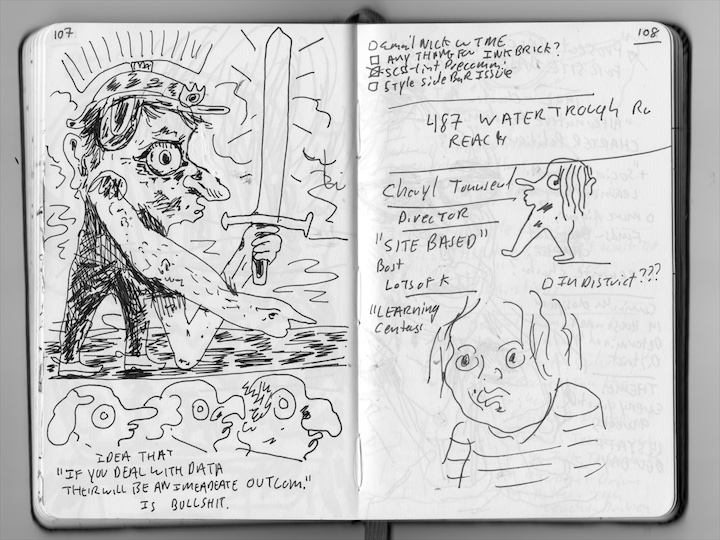 107
IDEA THAT
"IF YOU DEAL WITH DATA
THEIR WILL BE AN IMEADEATE OUTCOM."
IS BULLSHIT.
108
NICK W TME
ANY THANG FOR INKBRICK?
Precomm.
Style side BAR ISSUE
487 WATER TROUGH Rd
REACH
Cheryl Townsend
DIRECTOR
"SITE BASED"
Bost
LOTS OF K
IN DISTRICT???
"LEARNING
Centers